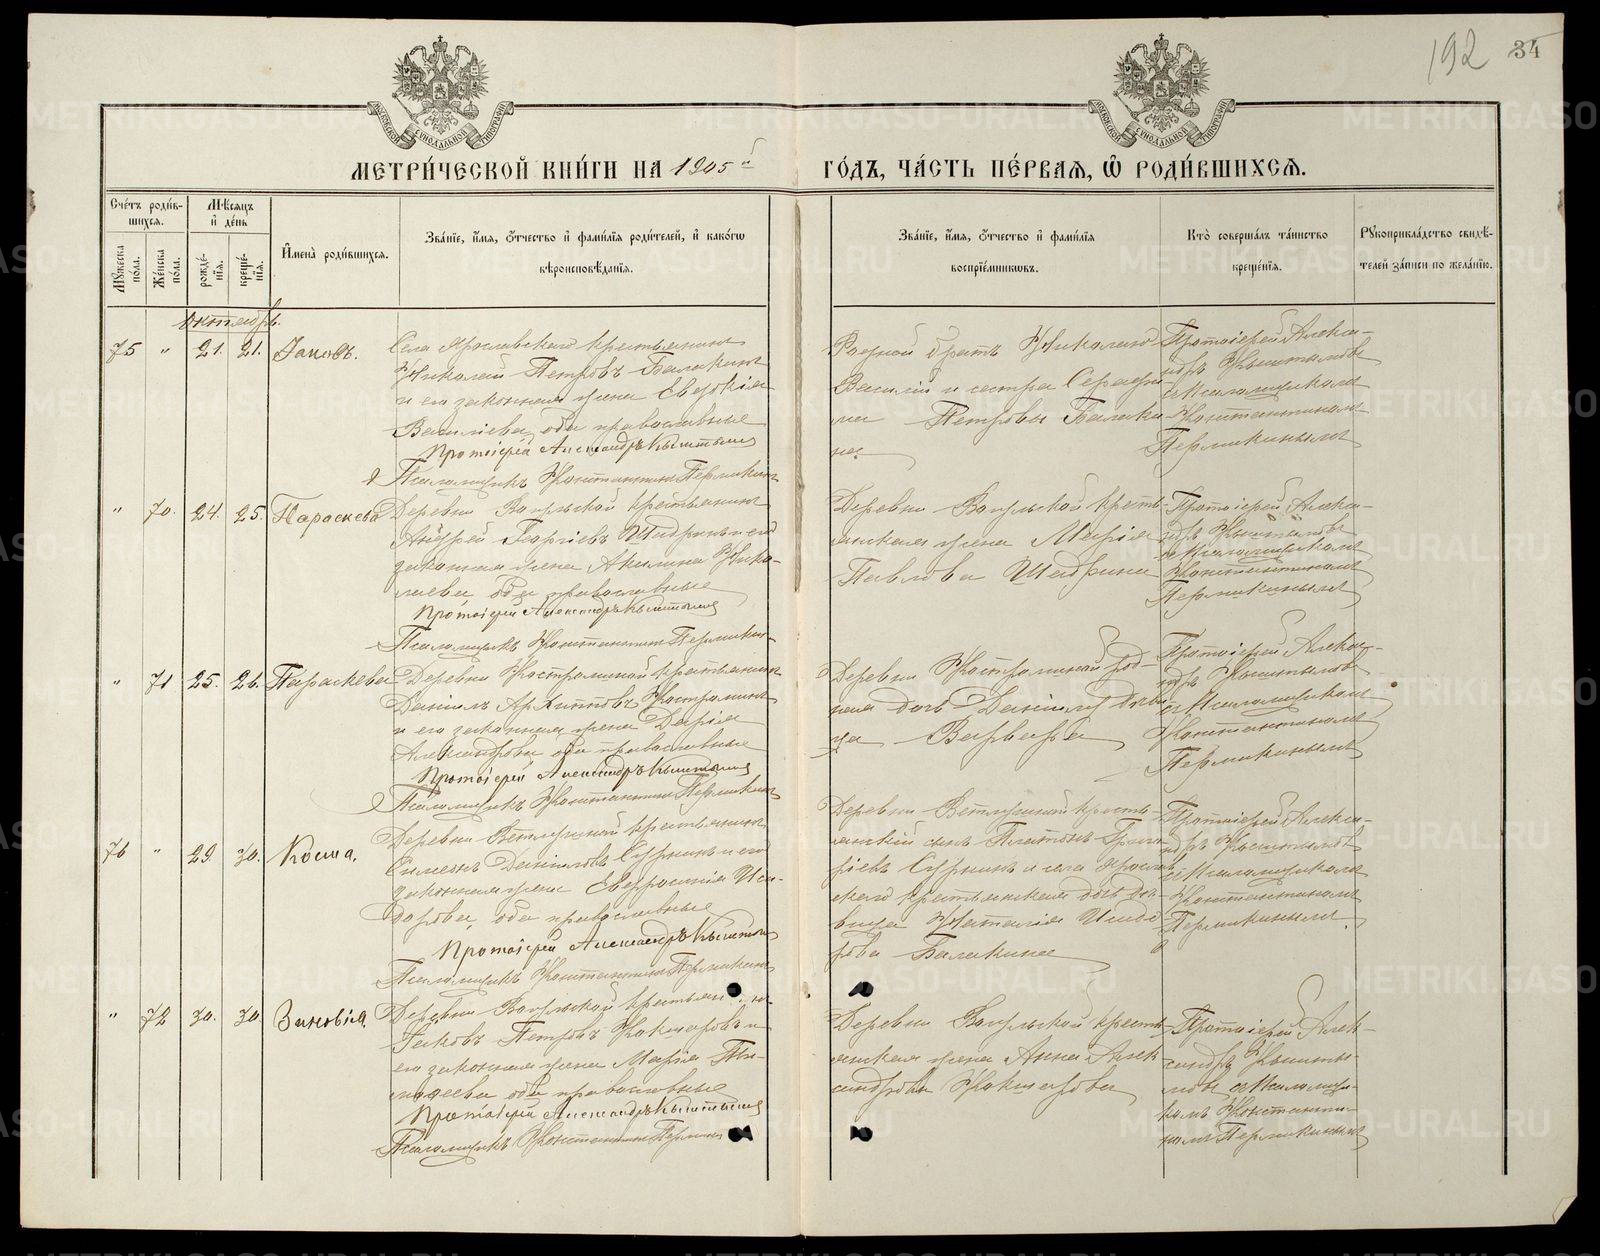 192 34
МЕТРИ́ЧЕСКОЙ КНИ́ГИ НА 1905й ГО́ДЪ, ЧА́СТЬ ПЕ́РВАѦ, Ѽ РОДИ́ВШИХСѦ.
Сче́тъ роди́вшихсѧ.
Мꙋ́жеска по́ла.
Же́нска по́ла.
Мѣ́сѧцъ и҆ де́нь
рожде́нїѧ.
креще́нїѧ.
И҆мена̀ роди́вшихсѧ.
Зва́нїе, и҆́мѧ, ѻ҆́тчество и҆ фами́лїѧ роди́телей, и҆ како́гѡ
вѣроисповѣ́данїѧ.
Зва́нїе, и҆́мѧ, ѻ҆́тчество и҆ фами́лїѧ
воспрїе́мникѡвъ.
Кто̀ соверша́лъ та́инство
креще́нїѧ.
Рꙋкоприкла́дство свидѣ́-
телей за́писи по жела́нїю.
Октябрь.
75 " 21. 21. Іаковъ.
Села Ярославскаго крестьянинъ
Николай Петровъ Балакинъ
и его законная жена Евдокія
Васильева, оба православные
Протоіерей Александръ Кыштымов
Псаломщикъ Константинъ Пермикин
Родной братъ Николаю
Василій и сестра Серафи-
ма Петровы Балаки-
на.
Протоіерей Алекса-
ндръ Кыштымовъ
съ Псаломщикомъ
Константиномъ
Пермикинымъ
" 70. 24. 25. Параскева
Деревни крестьянинъ
Андрей Георгіевъ Шадринъ и его
законная жена Акилина Нико-
лаева оба православные
Протоіерей Александръ Кыштымов
Псаломщикъ Константинъ Пермикин
Деревни кресть-
янская жена Марія
Павлова Шадрина
Протоіерей Алекса-
ндръ Кыштымовъ
съ Псаломщикомъ
Константиномъ
Пермикинымъ
" 71 25. 26. Параскева
Деревни Костроминой крестьянинъ
Даніилъ Архиповъ Костроминъ
и его законная жена Дарія
Александрова оба православные
Протоіерей Александръ Кыштымов
Псаломщикъ Константинъ Пермикин
Деревни Костроминой род-
ная дочь Даніила дѣви-
ца Варвара
Протоіерей Алекса-
ндръ Кыштымовъ
съ Псаломщикомъ
Константиномъ
Пермикинымъ
76 " 29 30. Косма.
Деревни Ветлугиной крестьянинъ
Симеонъ Даніиловъ Сурнинъ и его
законная жена Евфросинія Иси-
дорова, оба православные
Протоіерей Александръ Кыштымов
Псаломщикъ Константинъ Пермикин
Деревни Ветлугиной кресть-
янскій сынъ Платонъ Григо-
ріевъ Сурнинъ и села Ярослав-
скаго крестьянская дочь дѣ-
вица Наталія Исидо-
рова Балакина
Протоіерей Алекса-
ндръ Кыштымовъ
съ Псаломщикомъ
Константиномъ
Пермикинымъ.
" 72 30. 30. Зиновія.
Деревни крестьянинъ
Іаковъ Петровъ Кокшаровъ и
его законная жена Марія Ти-
моѳеева оба православные
Протоіерей Александръ Кыштымов
Псаломщикъ Константинъ Пермики
Деревни кресть-
янская жена Анна Алек-
сандрова Кокшарова
Протоіерей Алек-
сандръ Кышты-
мовъ съ Псаломщи-
комъ Константи-
номъ Пермикинымъ